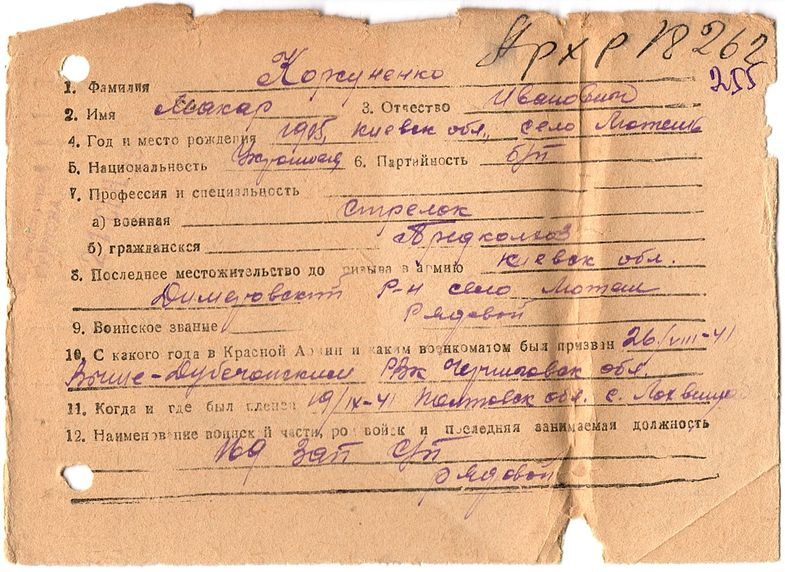 Арх р 18262
255
1. Фамилия Кожуненко
2. Имя Макар 3. Отчество Иванович
4. Год и место рождения 1905, Киевск обл., село
5. Национальность 6. Партийность б/п
7. Профессия и специальность
а) военная стрелок
б) гражданская Предколхоз
8. Последнее местожительство до призыва в армию Киевск обл.
Димеровский р-н село
9. Воинское звание Рядовой
10. С какого года в Красной Армии и каким военкоматом был призван 26/VIII-41
РВК Черниговск обл.
11. Когда и где был пленен 19/IX-41 Полтовск обл. с. Лохвица
12. Наименование воинской части, род войск и последняя занимаемая должность
зап с/п
рядовой